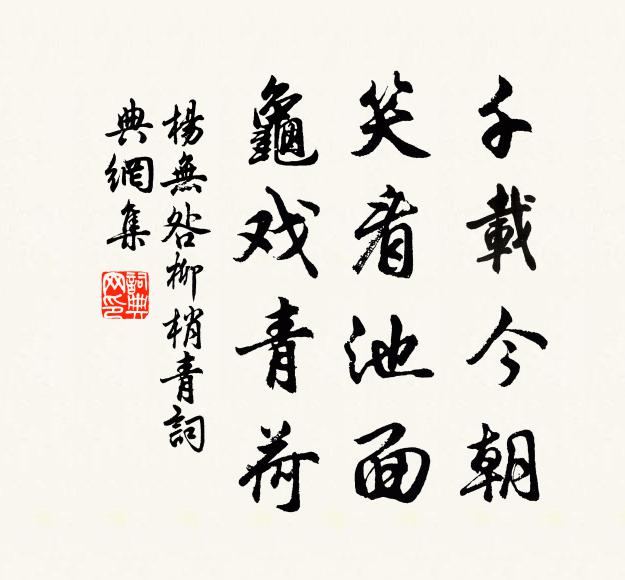 千載今朝
笑看池面
龜戏青荷
楊無咎柳梢青詞
典網集
詞典
网印